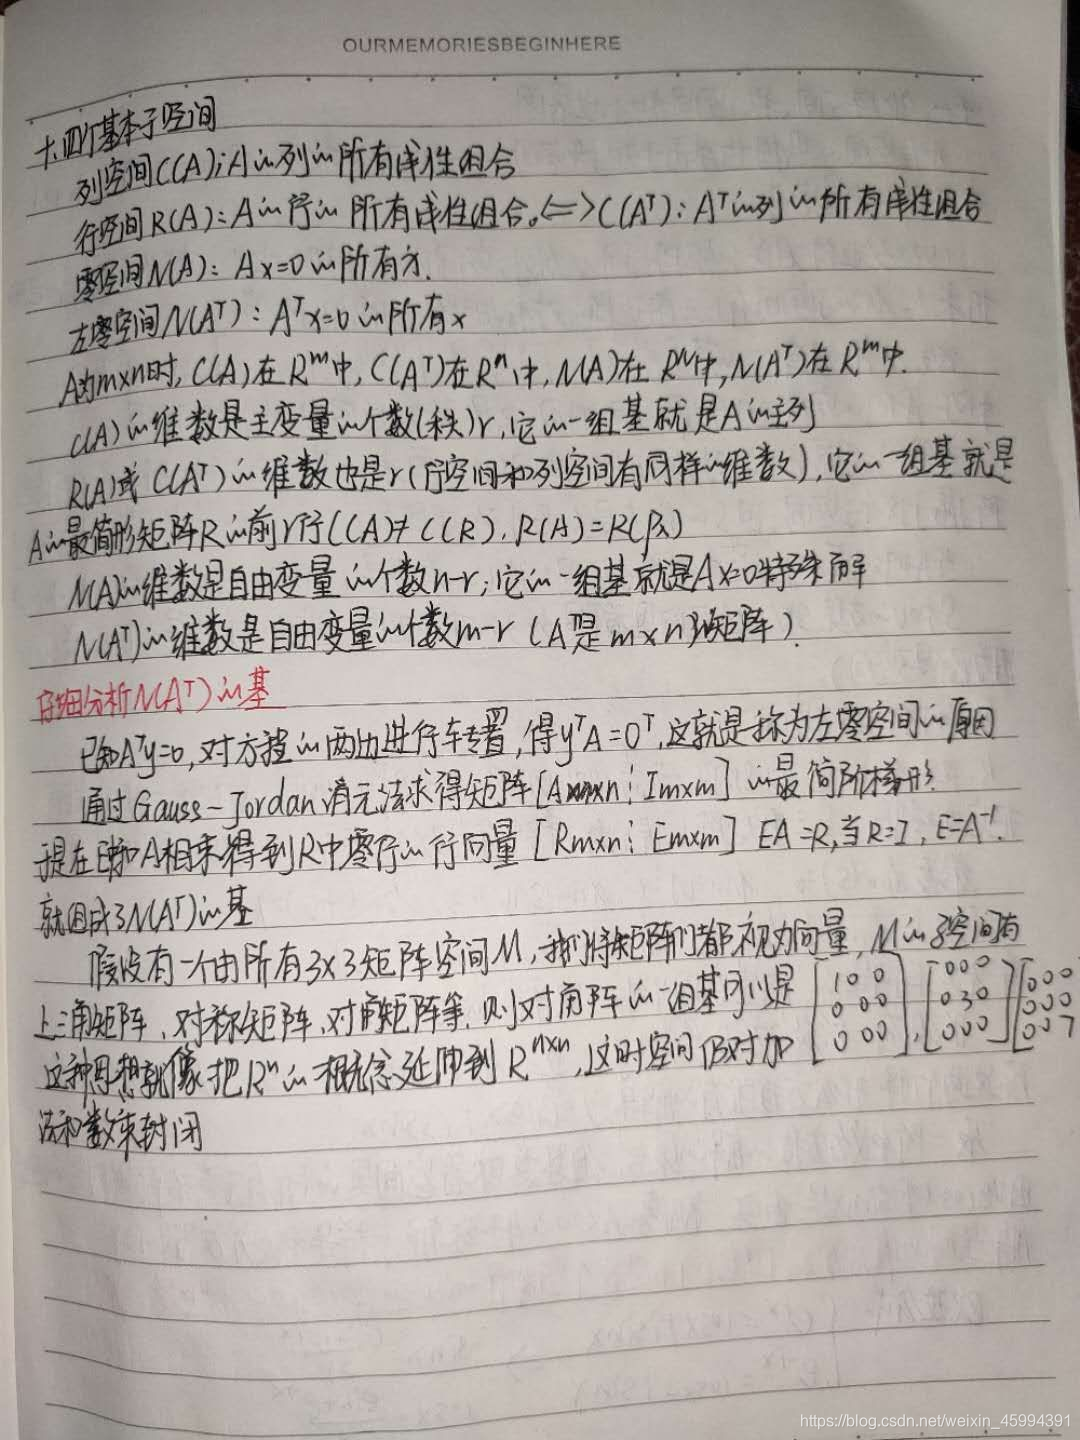 OURMEMORIESBEGINHERE
十.四个基本子空间
列空间C(A):A的列的所有线性组合
行空间R(A):A的行的所有线性组合。<=>C(Aᵀ):Aᵀ的列的所有线性组合
零空间N(A):Ax=0的所有x.
左零空间N(Aᵀ):Aᵀx=0的所有x
A为m×n时,C(A)在Rᵐ中,C(Aᵀ)在Rⁿ中,N(A)在Rᴺ中,N(Aᵀ)在Rᵐ中.
C(A)的维数是主变量的个数(秩)r,它的一组基就是A的主列
R(A)或C(Aᵀ)的维数也是r(行空间和列空间有同样的维数),它的一组基就是
A的最简形矩阵R的前r行(C(A)≠C(R),R(A)=R(R))
N(A)的维数是自由变量的个数n-r;它的一组基就是Ax=0特殊解
N(Aᵀ)的维数是自由变量的个数m-r(A是m×n的矩阵)
仔细分析N(Aᵀ)的基
已知Aᵀy=0,对方程的两边进行转置,得yᵀA=0ᵀ,这就是称为左零空间的原因
通过Gauss-Jordan消元法求得矩阵[Am×n⋮Im×m]的最简阶梯形
于是在E中和A相乘得到R中零行的行向量[Rm×n⋮Em×m] EA=R,当R=I,E=A⁻¹.
就组成了N(Aᵀ)的基
假设有一个由所有3×3矩阵空间M,我们将矩阵们都视为向量,M的子空间有
上三角矩阵、对称矩阵、对角矩阵等.则对角阵的一组基可以是[1 0 0 0 0 0 0 0 0],[0 0 0 0 3 0 0 0 0][0 0 0 0 0 0 0 0 7
这种思想就像把Rⁿ的概念延伸到Rⁿˣⁿ,这时空间仍对加
法和数乘封闭
https://blog.csdn.net/weixin_45994391